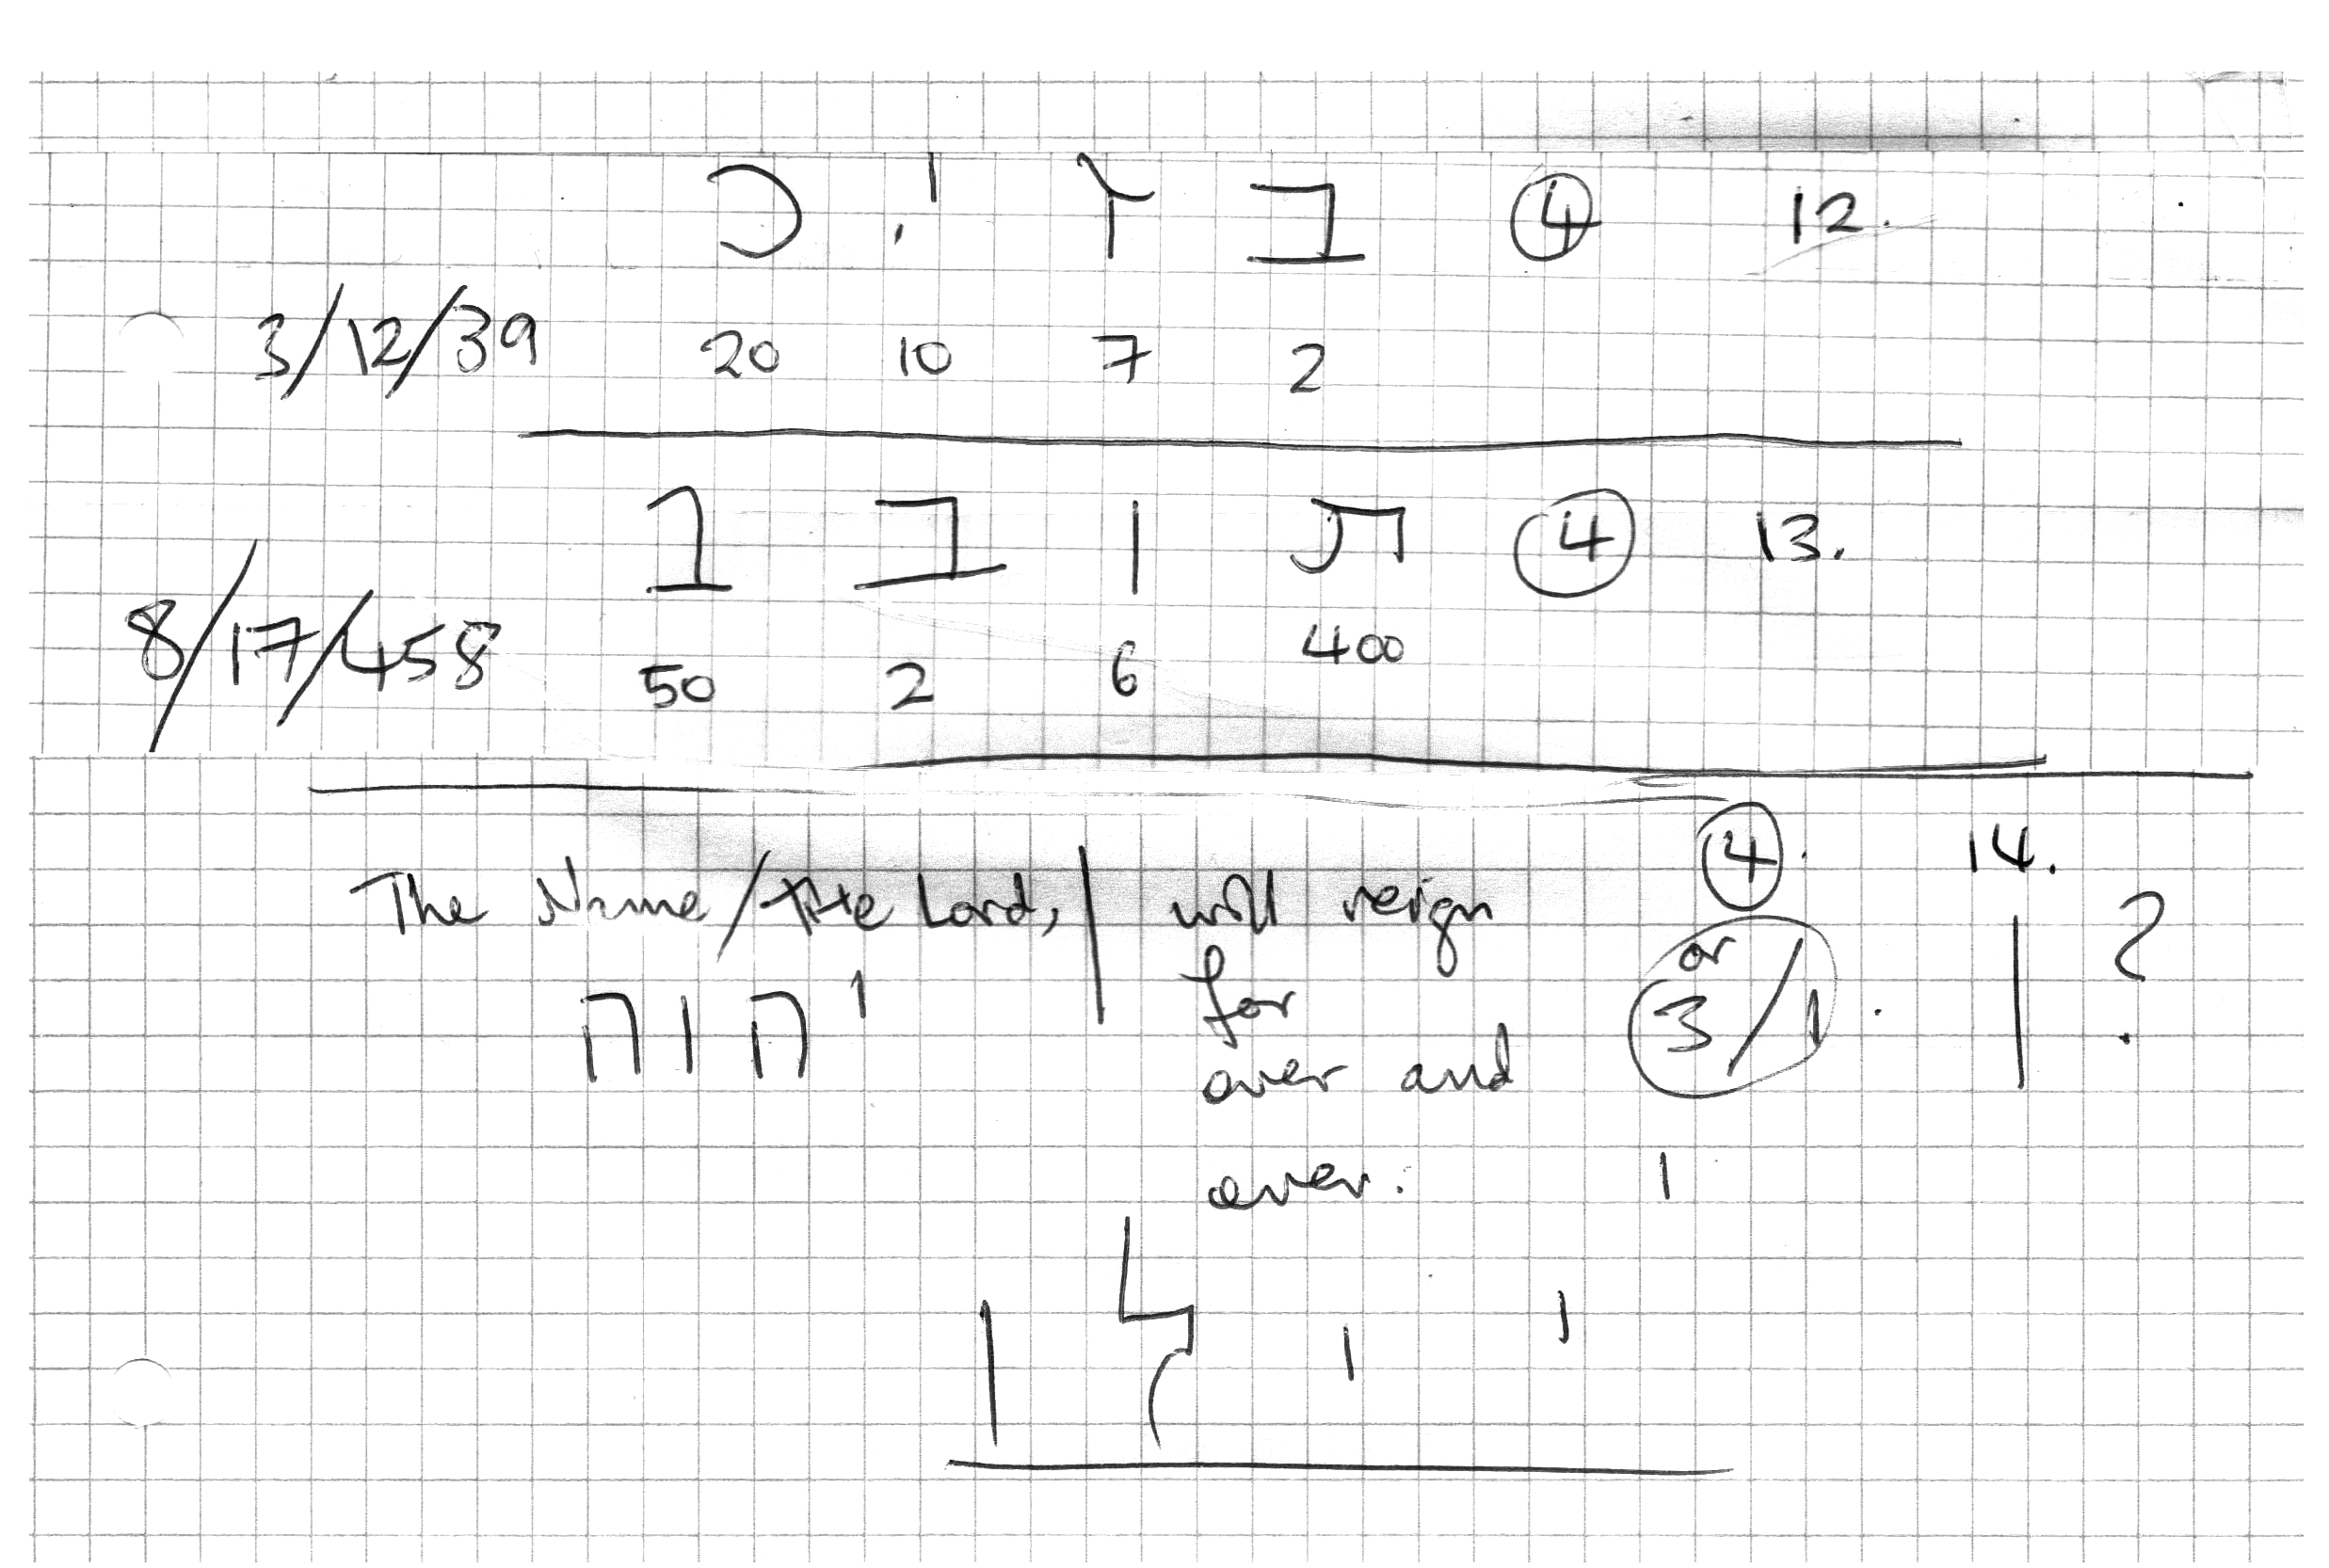 12. ④ ב ץ י כ
3/12/39 20 10 7 2
13. ④ ת ו ב נ
8/17/458 50 2 6 400
14. ④
The Name / the Lord, | will reign
? or
יהוה for 3/1.
over and
over.